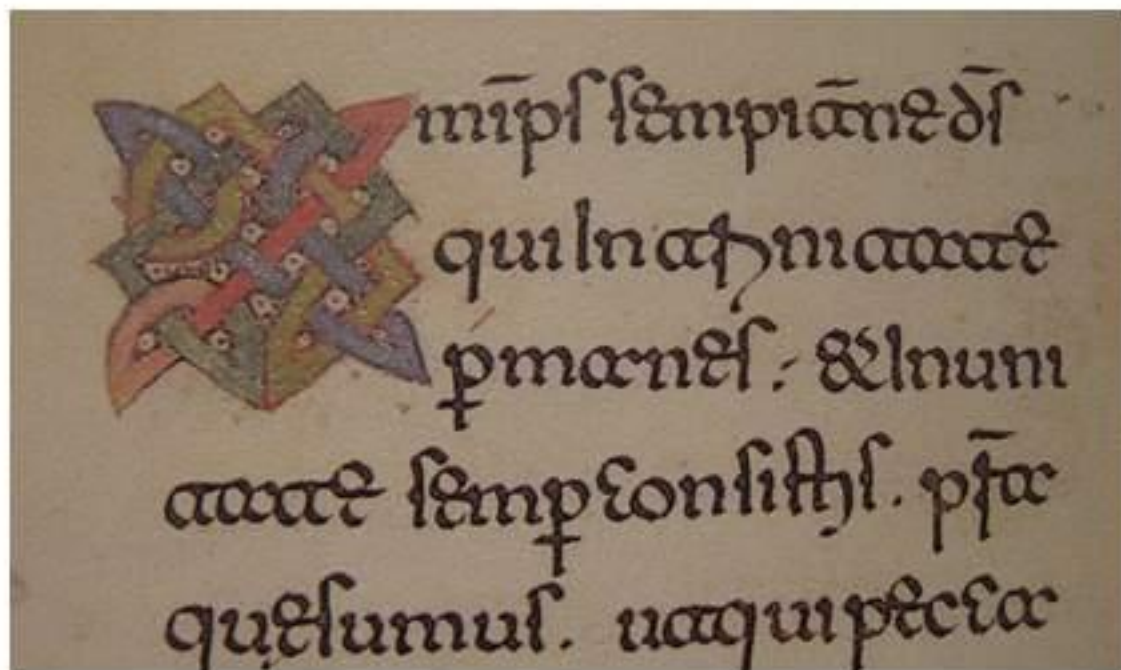 Omīps sempit̄ne d̄s
qui In trinitate
ꝑmanes · & In uni
tate semꝑ consistis. ps̄ta
quęsumus. ut qui pecca